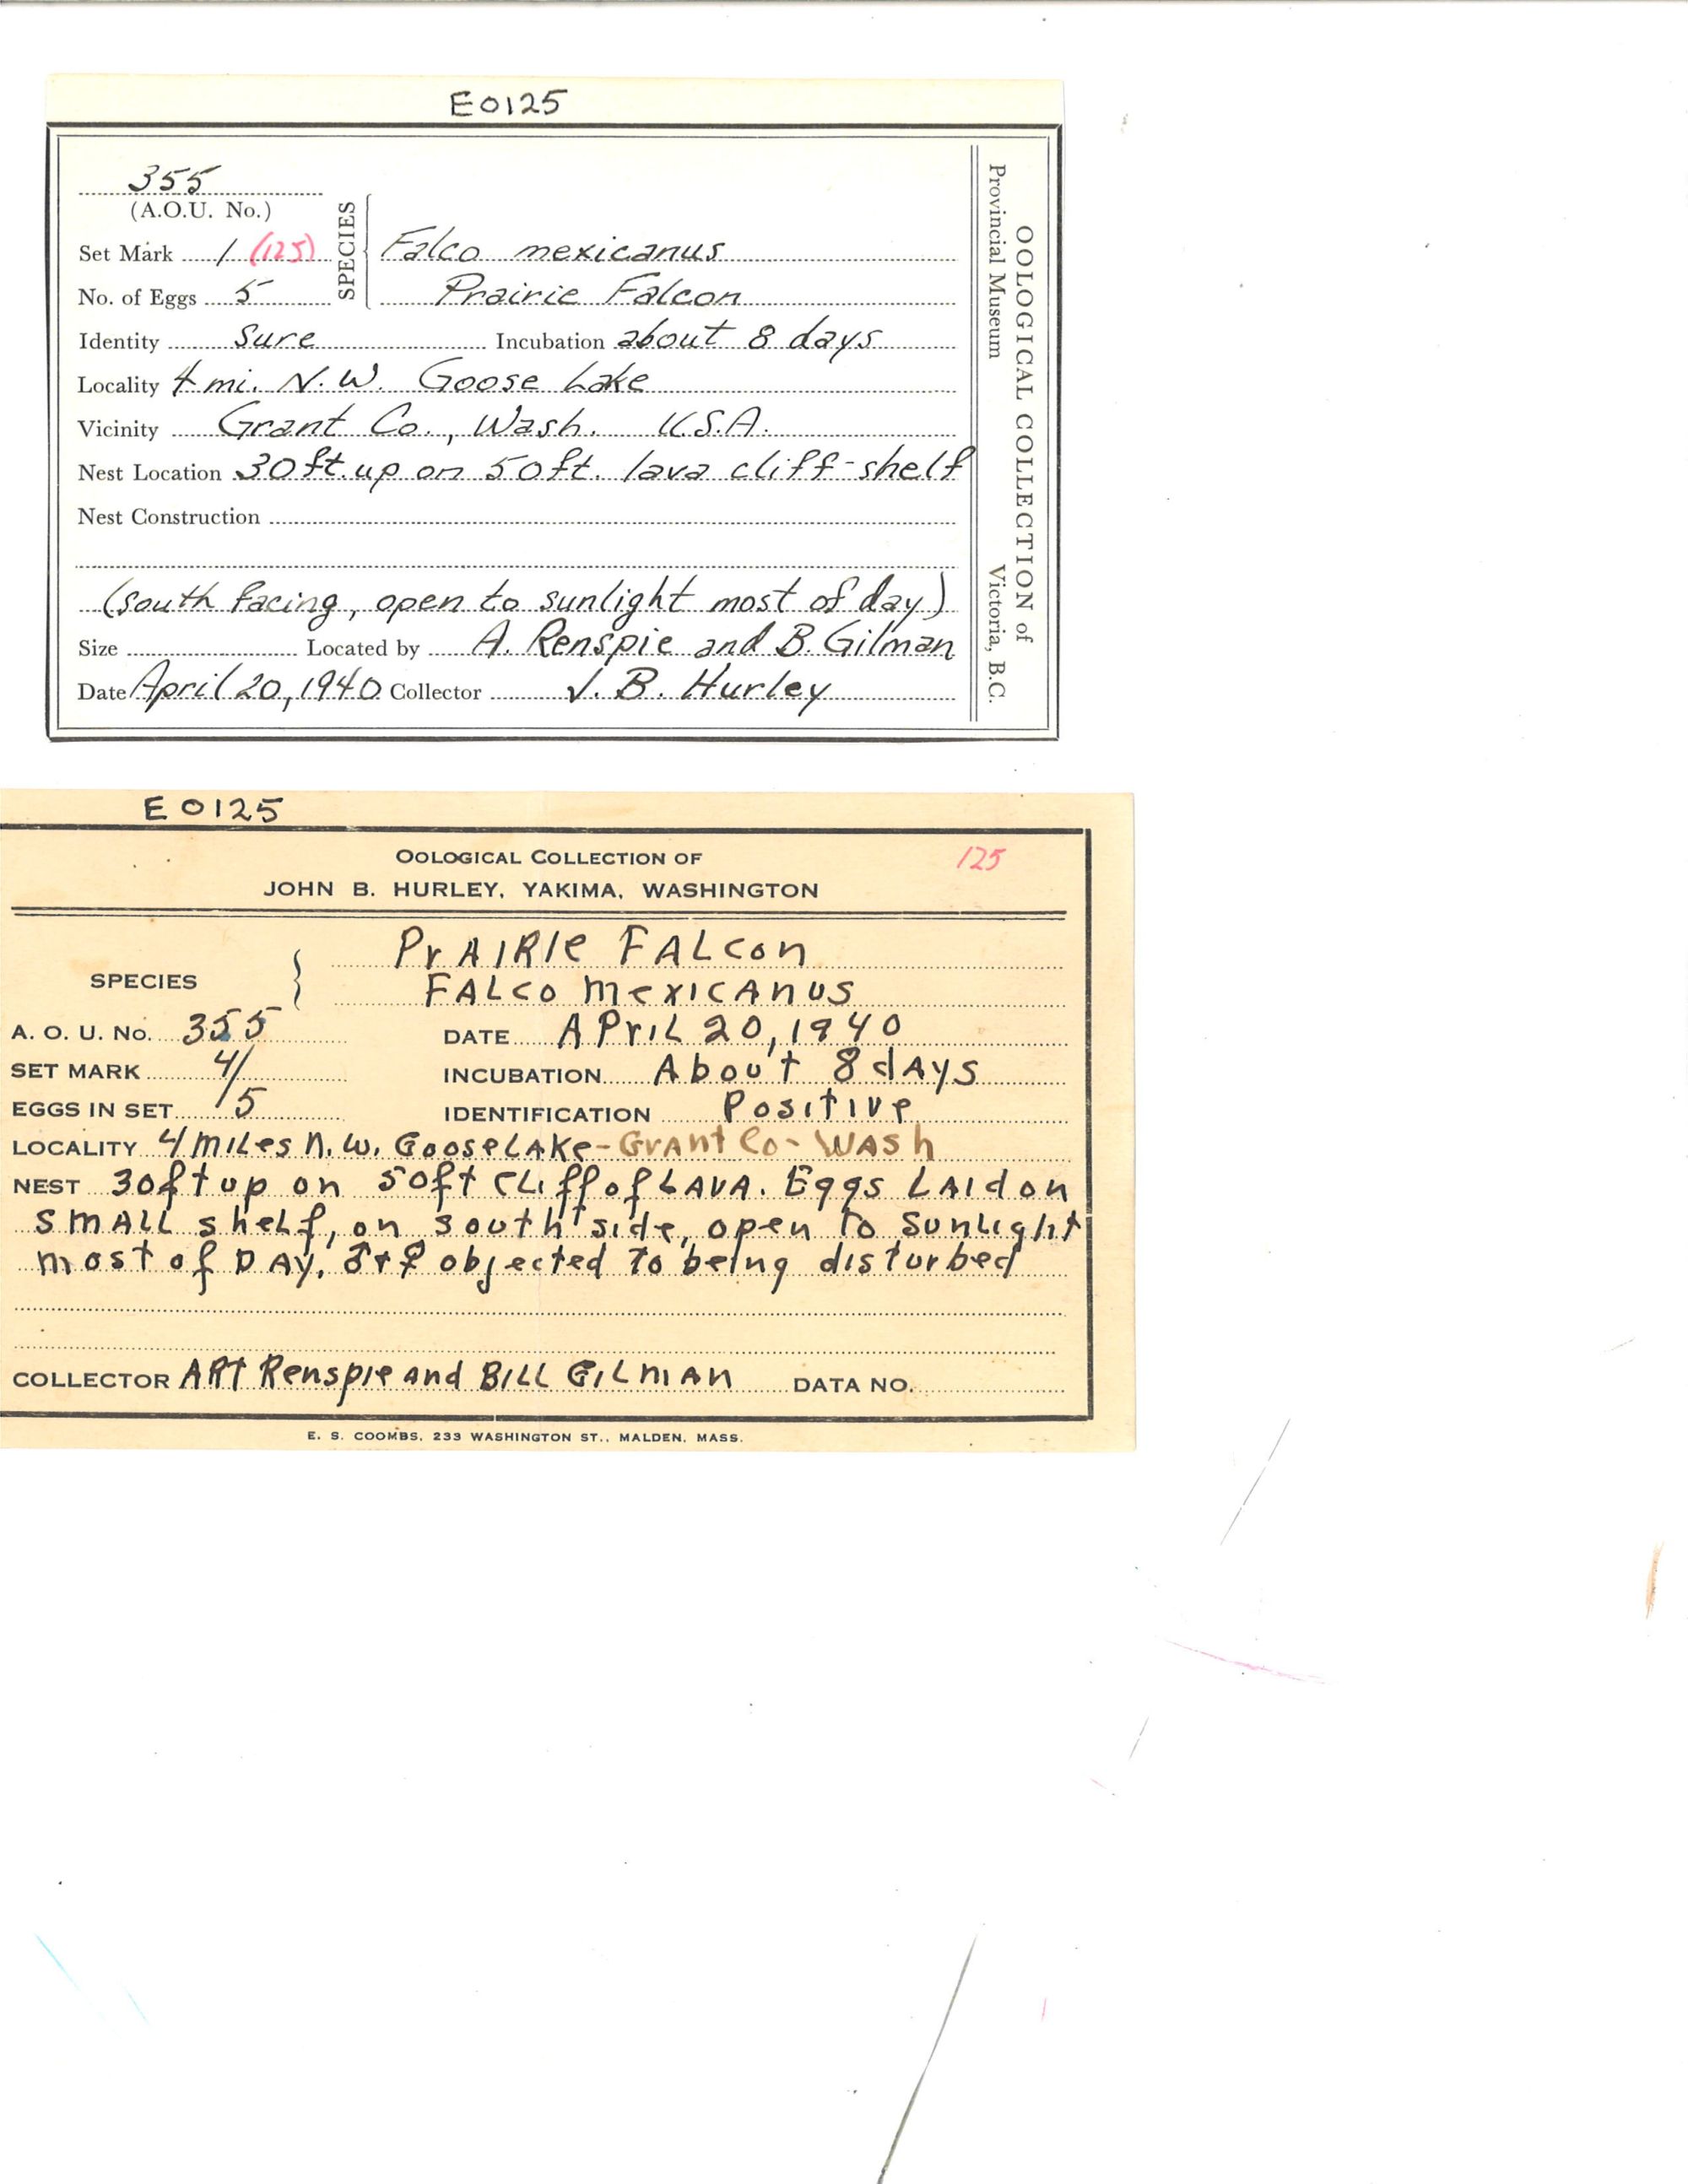 E0125
355
(A.O.U. No.)
Set Mark 1 (125)
No. of Eggs 5
SPECIES
Falco mexicanus
Prairie Falcon
Identity sure Incubation about 8 days
Locality 4 mi. N.W. Goose Lake
Vicinity Grant Co., Wash. U.S.A.
Nest Location 30ft. up on 50ft. lava cliff-shelf
Nest Construction
(south facing, open to sunlight most of day)
Size Located by A. Renspie and B. Gilman
Date April 20, 1940 Collector J. B. Hurley
OOLOGICAL COLLECTION of
Provincial Museum Victoria, B.C.
E0125
OOLOGICAL COLLECTION OF
125
JOHN B. HURLEY, YAKIMA, WASHINGTON
SPECIES
PrAIRIe FALcon
FALco mexICAnus
A. O. U. No. 355 DATE APrIL 20, 1940
SET MARK 4/ INCUBATION About 8 dAys
EGGS IN SET /5 IDENTIFICATION Positive
LOCALITY 4 MILes N.W. Goose LAKe - GrAnt Co - WAsh
NEST 30ft up on 50ft CLiff of LAVA. Eggs LAId on
SMALL sheLf, on south side, open to sunLight
most of DAy, ♂ + ♀ objected to being disturbed
COLLECTOR ART Renspie and BILL GILmAn DATA NO.
E. S. COOMBS, 233 WASHINGTON ST., MALDEN, MASS.